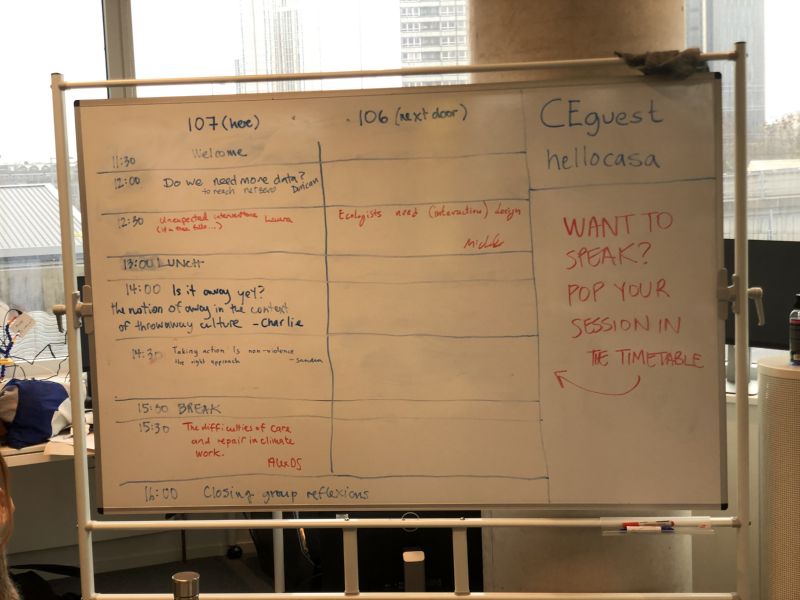 107 (here)
106 (next door)
CEguest
hellocasa
11:30 Welcome
12:00 Do we need more data?
to reach netzero Duncan
12:30 Unexpected interventions Laura
(if a tree falls...)
Ecologists need (interaction) design
Michelle
13:00 LUNCH
14:00 Is it away yet?
the notion of away in the context
of throwaway culture - Charlie
14:30 Taking action Is non-violence
the right approach - Sandra
15:30 BREAK
15:30 The difficulties of care
and repair in climate
work.
Alex DS
16:00 Closing group reflexions
WANT TO
SPEAK?
POP YOUR
SESSION IN
THE TIMETABLE